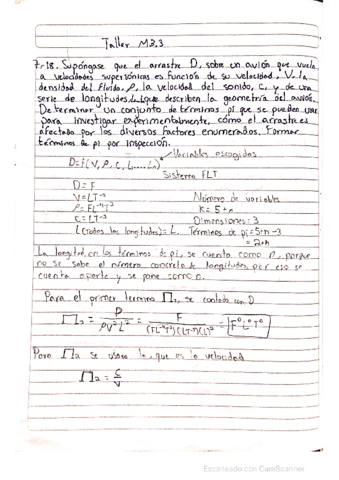 Taller M2,3
7.18. Supóngase que el arrastre D, sobre un avión que vuela
a velocidades supersónicas es función de su velocidad, V, la
densidad del fluido, ρ, la velocidad del sonido, c, y de una
serie de longitudes, que describen la geometría del avión.
Determinar un conjunto de términos pi que se pueden usar
para investigar experimentalmente, cómo el arrastre es
afectado por los diversos factores enumerados. Formar
términos de pi por inspección.
D=f(V, ρ, C, L,...Ln) Variables escogidas
Sistema FLT
D = F
V = LT⁻¹ Número de variables
ρ = FL⁻⁴T² K = 5+n
C = LT⁻¹ Dimensiones: 3
L (todas las longitudes) = L. Términos de pi = 5+n-3
= 2+n
La longitud en los términos de pi, se cuenta como n, porque
no se sabe el número concreto de longitudes, por eso se
cuenta aparte y se pone como n.
Para el primer termino Π₁, se contado con D
Π₁ = D/ρV²L² = F/(FL⁻⁴T²)(LT⁻¹)²(L)² = F⁰L⁰T⁰
Para Π₂ se usara la, que es la velocidad
Π₂ = C/V
Escaneado con CamScanner